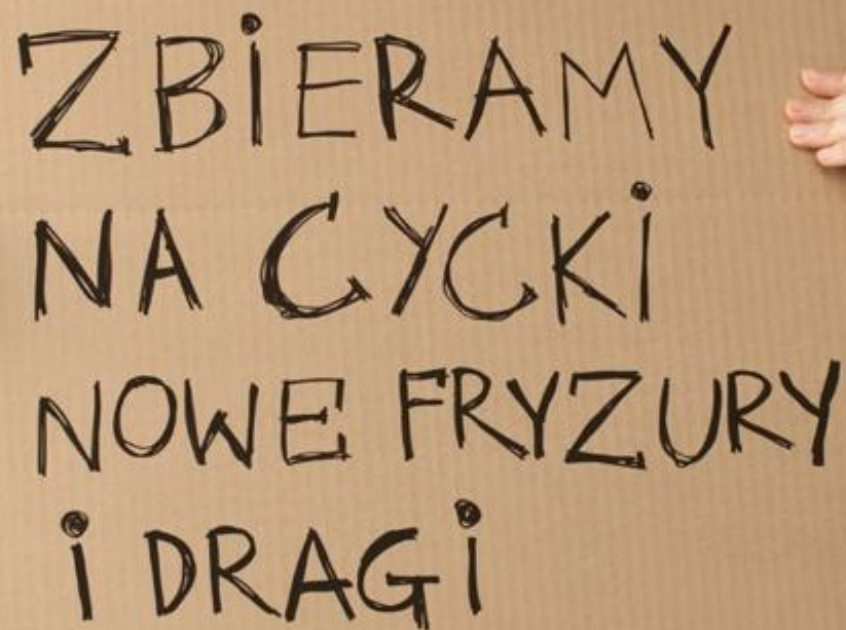 ZBiERAMY
NA CYCKi
NOWE FRYZURY
i DRAGi